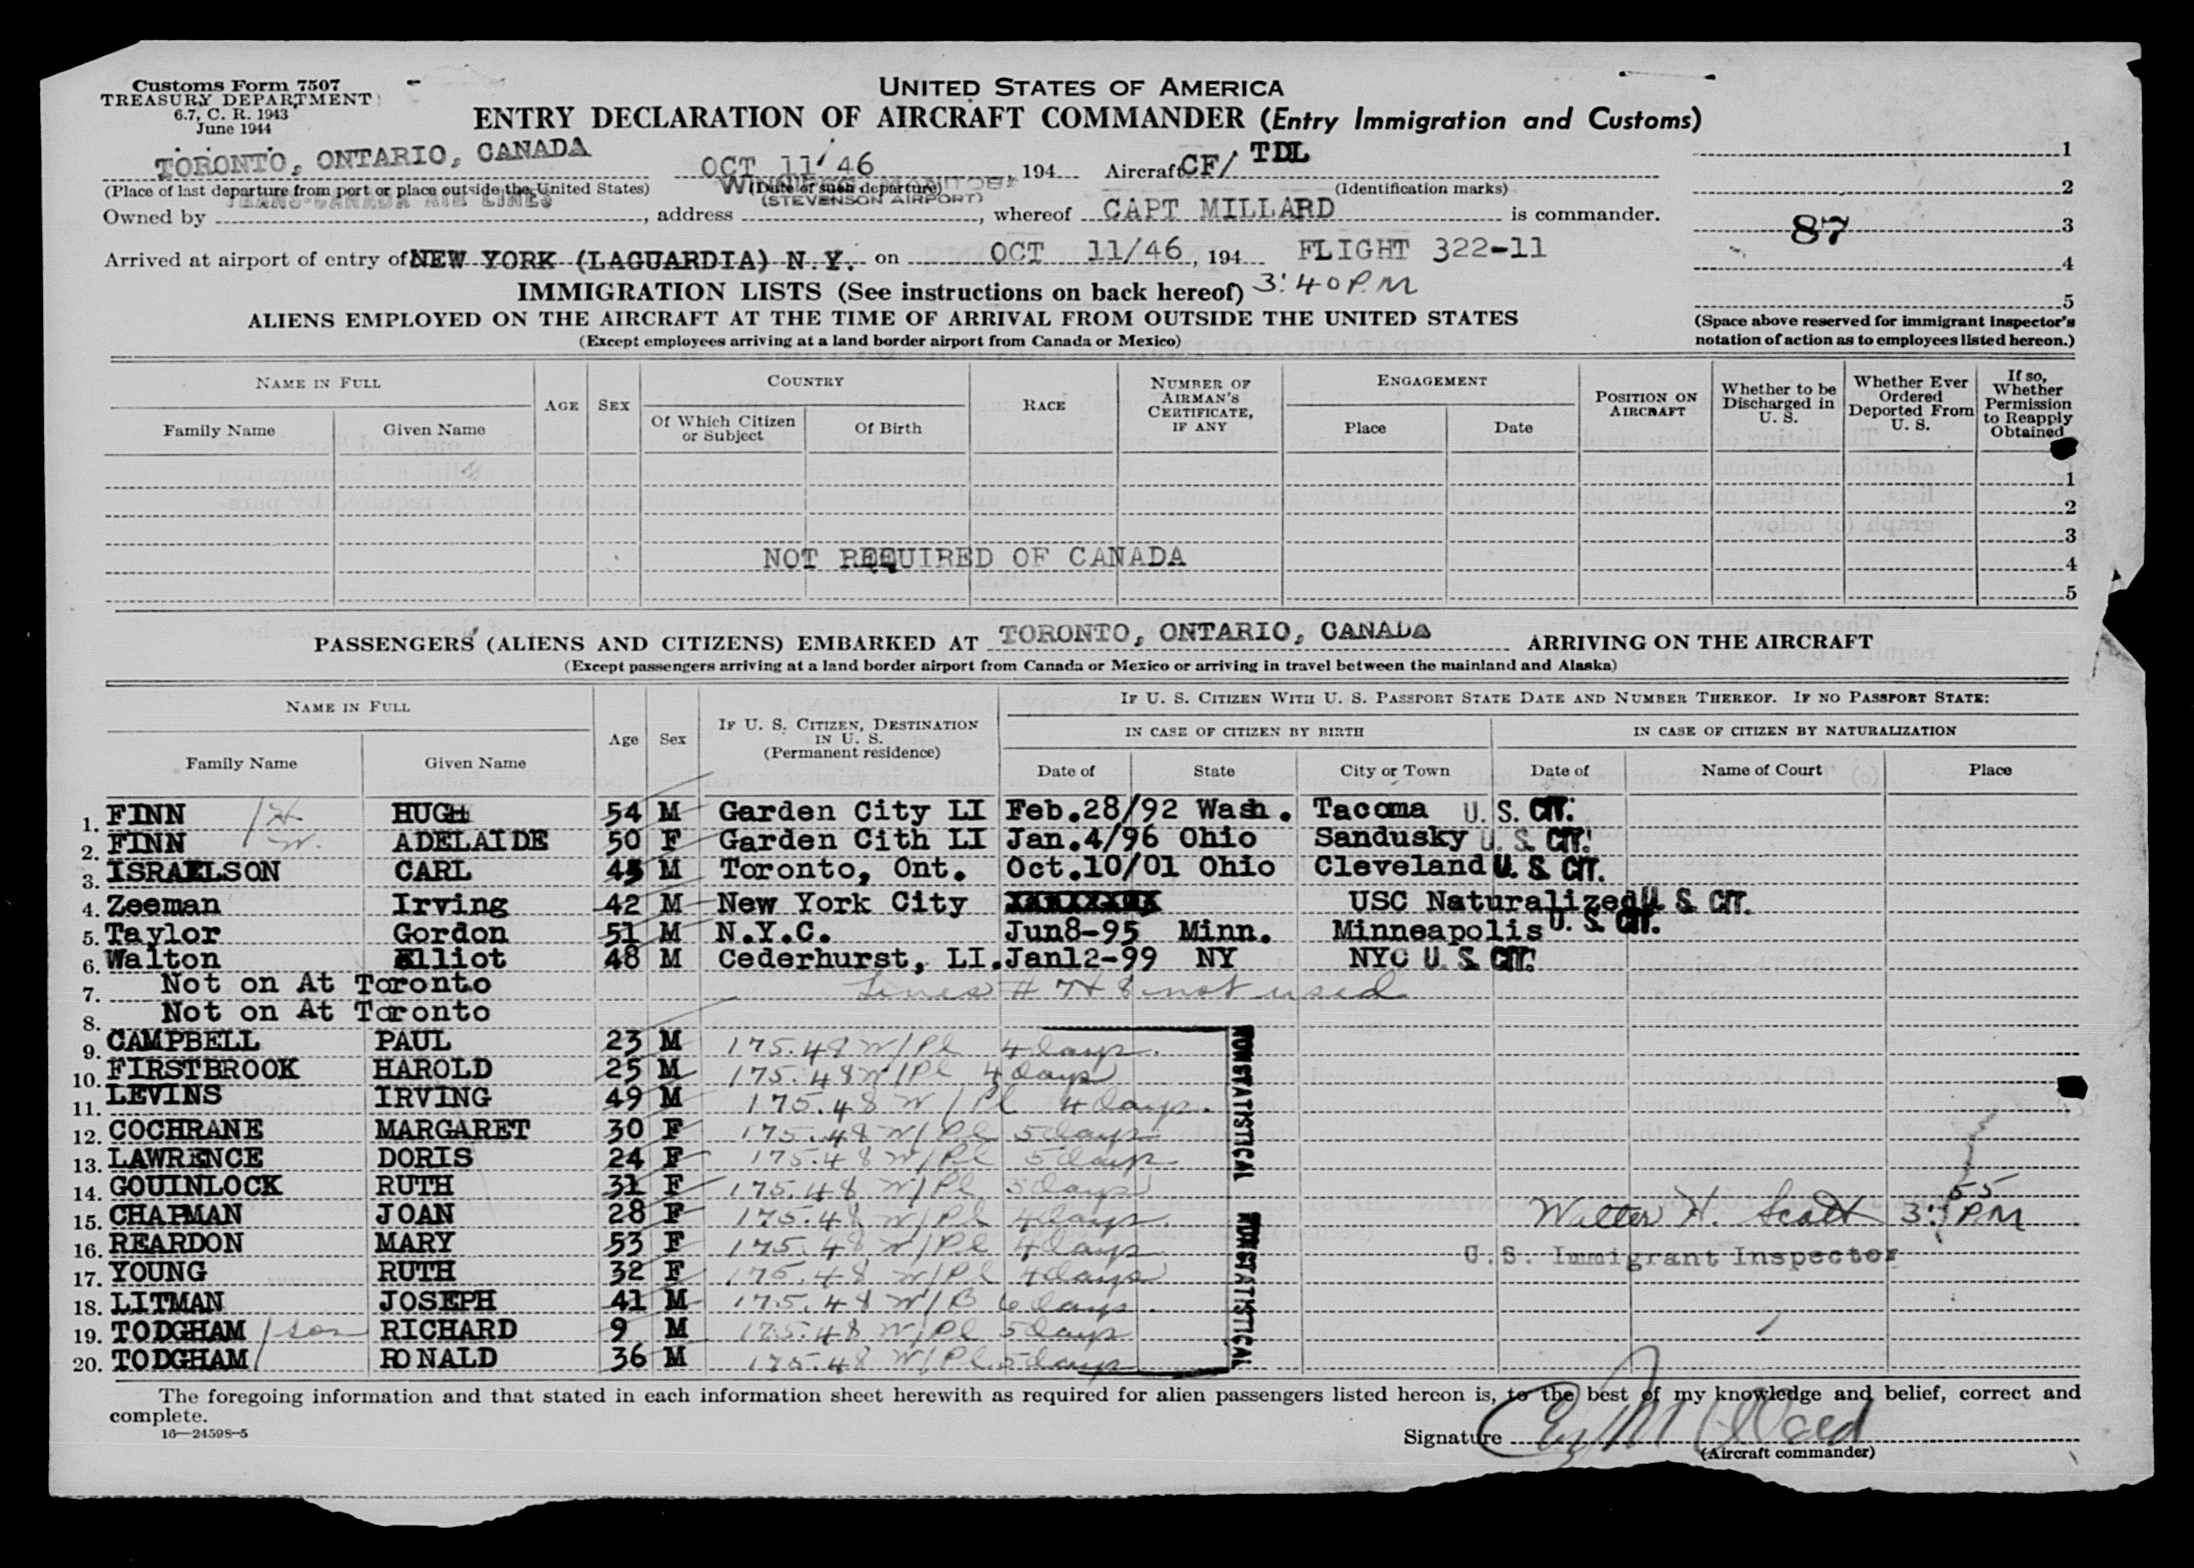 Customs Form 7507
TREASURY DEPARTMENT
6.7, C. R. 1943
June 1944
UNITED STATES OF AMERICA
ENTRY DECLARATION OF AIRCRAFT COMMANDER (Entry Immigration and Customs)
TORONTO, ONTARIO, CANADA OCT 11 46, 194 Aircraft CF/ TDL
(Place of last departure from port or place outside the United States) (Date of such departure) (Identification marks)
WINNIPEG MANITOBA
(STEVENSON AIRPORT)
Owned by TRANS-CANADA AIR LINES, address, whereof CAPT MILLARD is commander.
Arrived at airport of entry of NEW YORK (LAGUARDIA) N.Y. on OCT 11/46, 194 FLIGHT 322-11
3:40 P.M
1
2
87 3
4
5
(Space above reserved for immigrant inspector's
notation of action as to employees listed hereon.)
IMMIGRATION LISTS (See instructions on back hereof)
ALIENS EMPLOYED ON THE AIRCRAFT AT THE TIME OF ARRIVAL FROM OUTSIDE THE UNITED STATES
(Except employees arriving at a land border airport from Canada or Mexico)
NAME IN FULL
Family Name Given Name
AGE SEX
COUNTRY
Of Which Citizen or Subject Of Birth
RACE
NUMBER OF AIRMAN'S CERTIFICATE, IF ANY
ENGAGEMENT
Place Date
POSITION ON AIRCRAFT
Whether to be Discharged in U. S.
Whether Ever Ordered Deported From U. S.
If so, Whether Permission to Reapply Obtained
1
2
3
NOT REQUIRED OF CANADA 4
5
PASSENGERS (ALIENS AND CITIZENS) EMBARKED AT TORONTO, ONTARIO, CANADA ARRIVING ON THE AIRCRAFT
(Except passengers arriving at a land border airport from Canada or Mexico or arriving in travel between the mainland and Alaska)
NAME IN FULL
Family Name Given Name
Age Sex
IF U. S. CITIZEN, DESTINATION IN U. S.
(Permanent residence)
IF U. S. CITIZEN WITH U. S. PASSPORT STATE DATE AND NUMBER THEREOF. IF NO PASSPORT STATE:
IN CASE OF CITIZEN BY BIRTH IN CASE OF CITIZEN BY NATURALIZATION
Date of State City or Town Date of Name of Court Place
1. FINN HUGH 54 M Garden City LI Feb.28/92 Wash. Tacoma U. S. CIT.
2. FINN ADELAIDE 50 F Garden Cith LI Jan.4/96 Ohio Sandusky U. S. CIT.
3. ISRAELSON CARL 45 M Toronto, Ont. Oct.10/01 Ohio Cleveland U. S. CIT.
4. Zeeman Irving 42 M New York City USC Naturalized U. S. CIT.
5. Taylor Gordon 51 M N.Y.C. Jun8-95 Minn. Minneapolis U. S. CIT.
6. Walton Elliot 48 M Cederhurst, LI. Jan12-99 NY NYC U. S. CIT.
7. Not on At Toronto Lines # 7 & 8 not used
8. Not on At Toronto
9. CAMPBELL PAUL 23 M 175.48 W/Pl 4 days.
10. FIRSTBROOK HAROLD 25 M 175.48 W/Pl 4 days
11. LEVINS IRVING 49 M 175.48 W/Pl 4 days.
12. COCHRANE MARGARET 30 F 175.48 W/Pl 5 days
13. LAWRENCE DORIS 24 F 175.48 W/Pl 5 days.
14. GOUINLOCK RUTH 31 F 175.48 W/Pl 5 days
15. CHAPMAN JOAN 28 F 175.48 W/Pl 4 days.
16. REARDON MARY 53 F 175.48 W/Pl 4 days
17. YOUNG RUTH 32 F 175.48 W/Pl 4 days
18. LITMAN JOSEPH 41 M 175.48 W/B 6 days.
19. TODGHAM / son RICHARD 9 M 175.48 W/Pl 5 days
20. TODGHAM RONALD 36 M 175.48 W/Pl 5 days
NONSTATISTICAL NONSTATISTICAL
Walter H. Scott 3:55 PM
U.S. Immigrant Inspector
The foregoing information and that stated in each information sheet herewith as required for alien passengers listed hereon is, to the best of my knowledge and belief, correct and
complete.
16—24598-5
Signature
(Aircraft commander)